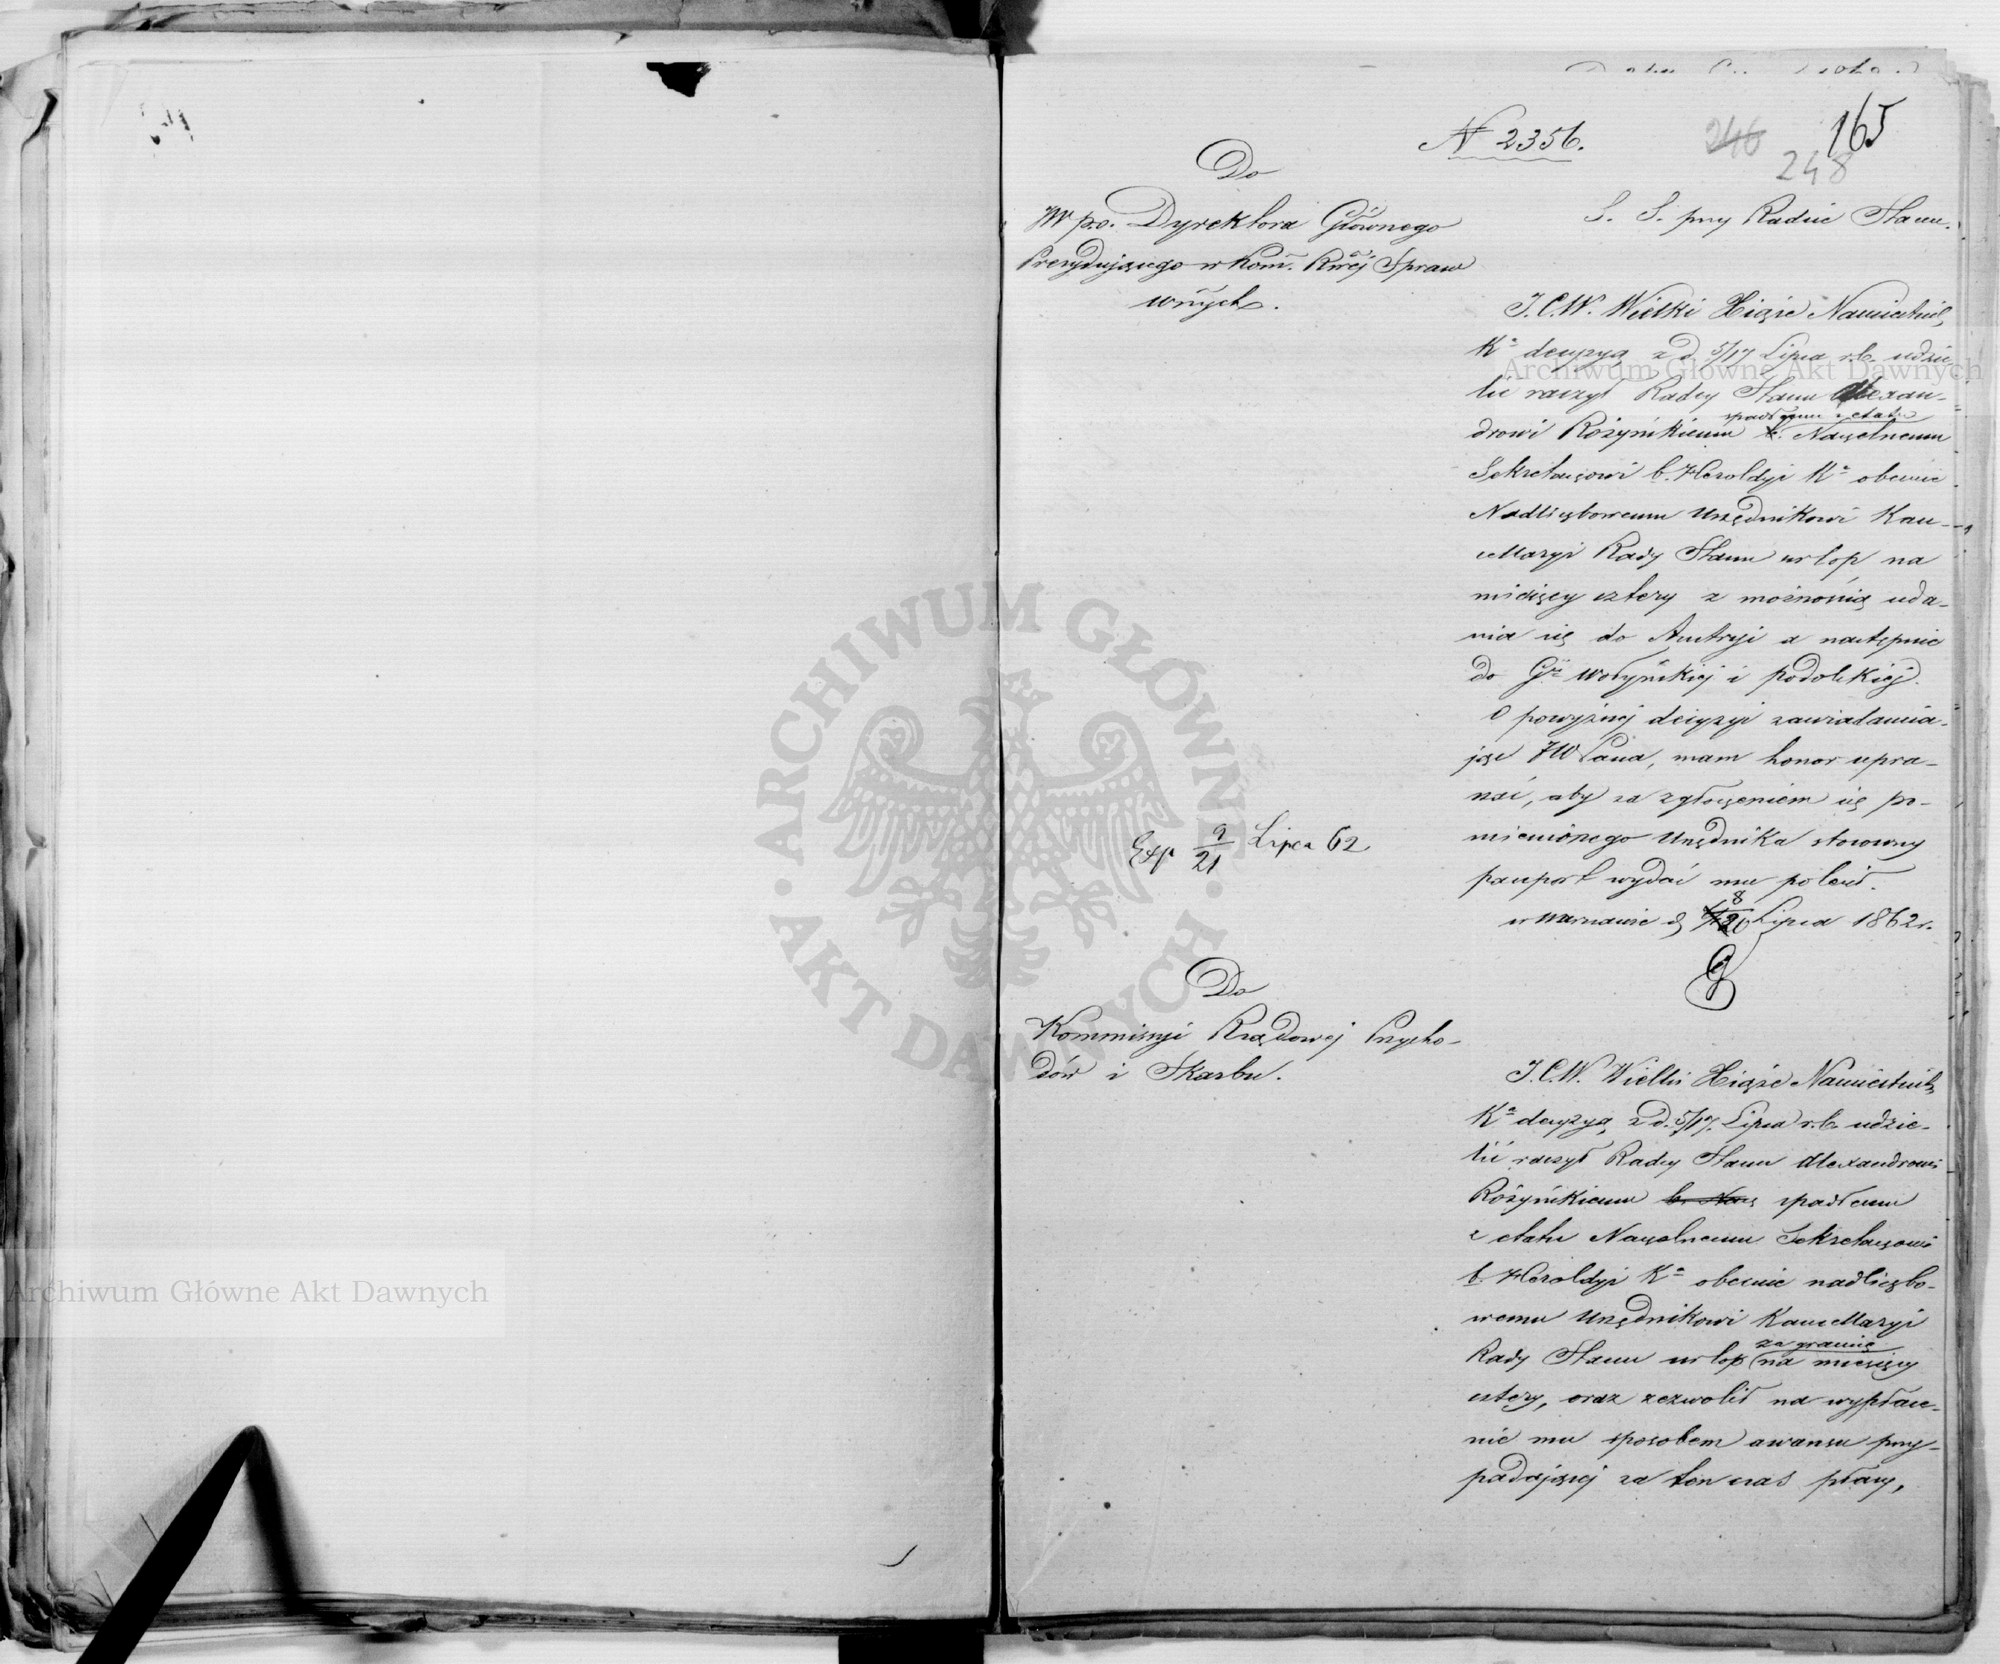 165
N 2356.
246
248
Do
JW p.o. Dyrektora Głównego
Prezydującego w Kom. Rwéj Spraw
Wnych.
S. S. przy Radzie Stanu.
J.C.W. Wielki Xiąże Namiestnik
Ka decyzyą z d 5/17 Lipca r.b. udzie
lić raczył Radcy Stanu Alexan-
drowi Różyńskiemu spadłemu z etatu b. Naczelnemu
Sekretarzowi b. Heroldyi Ka obecnie
Nadliczbowemu Urzędnikowi Kan-
cellaryi Rady Stanu urlop na
miesięcy cztery z możnością uda-
nia się do Austryi a następnie
do Gii Wołyńskiej i podolskiéj.
O powyższej decyzyi zawiadamia-
jąc JW Pana, mam honor upra-
szać, aby za zgłoszeniem się po-
mienionego Urzędnika stosowny
paszport wydać mu polecił.
w Warszawie d 8/20 Lipca 1862 r.
Exp 9/21 Lipca 62
Do
Kommisyi Rządowej Przycho-
dów i Skarbu.
J.C.W. Wielki Xiąże Namiestnik
Ka decyzyą z d. 5/17. Lipca r.b. udzie-
lić raczył Radcy Stanu Alexandrowi
Różyńskiemu b. Nacz spadłemu
z etatu Naczelnemu Sekretarzowi
b. Heroldyi Ka obecnie nadliczbo-
wemu Urzędnikowi Kancellaryi
Rady Stanu urlop za granicę na miesięcy
cztery, oraz zezwolił na wypłace-
nie mu sposobem awansu przy-
padającej za ten czas płacy,
Archiwum Główne Akt Dawnych
Archiwum Główne Akt Dawnych
ARCHIWUM GŁÓWNE
AKT DAWNYCH